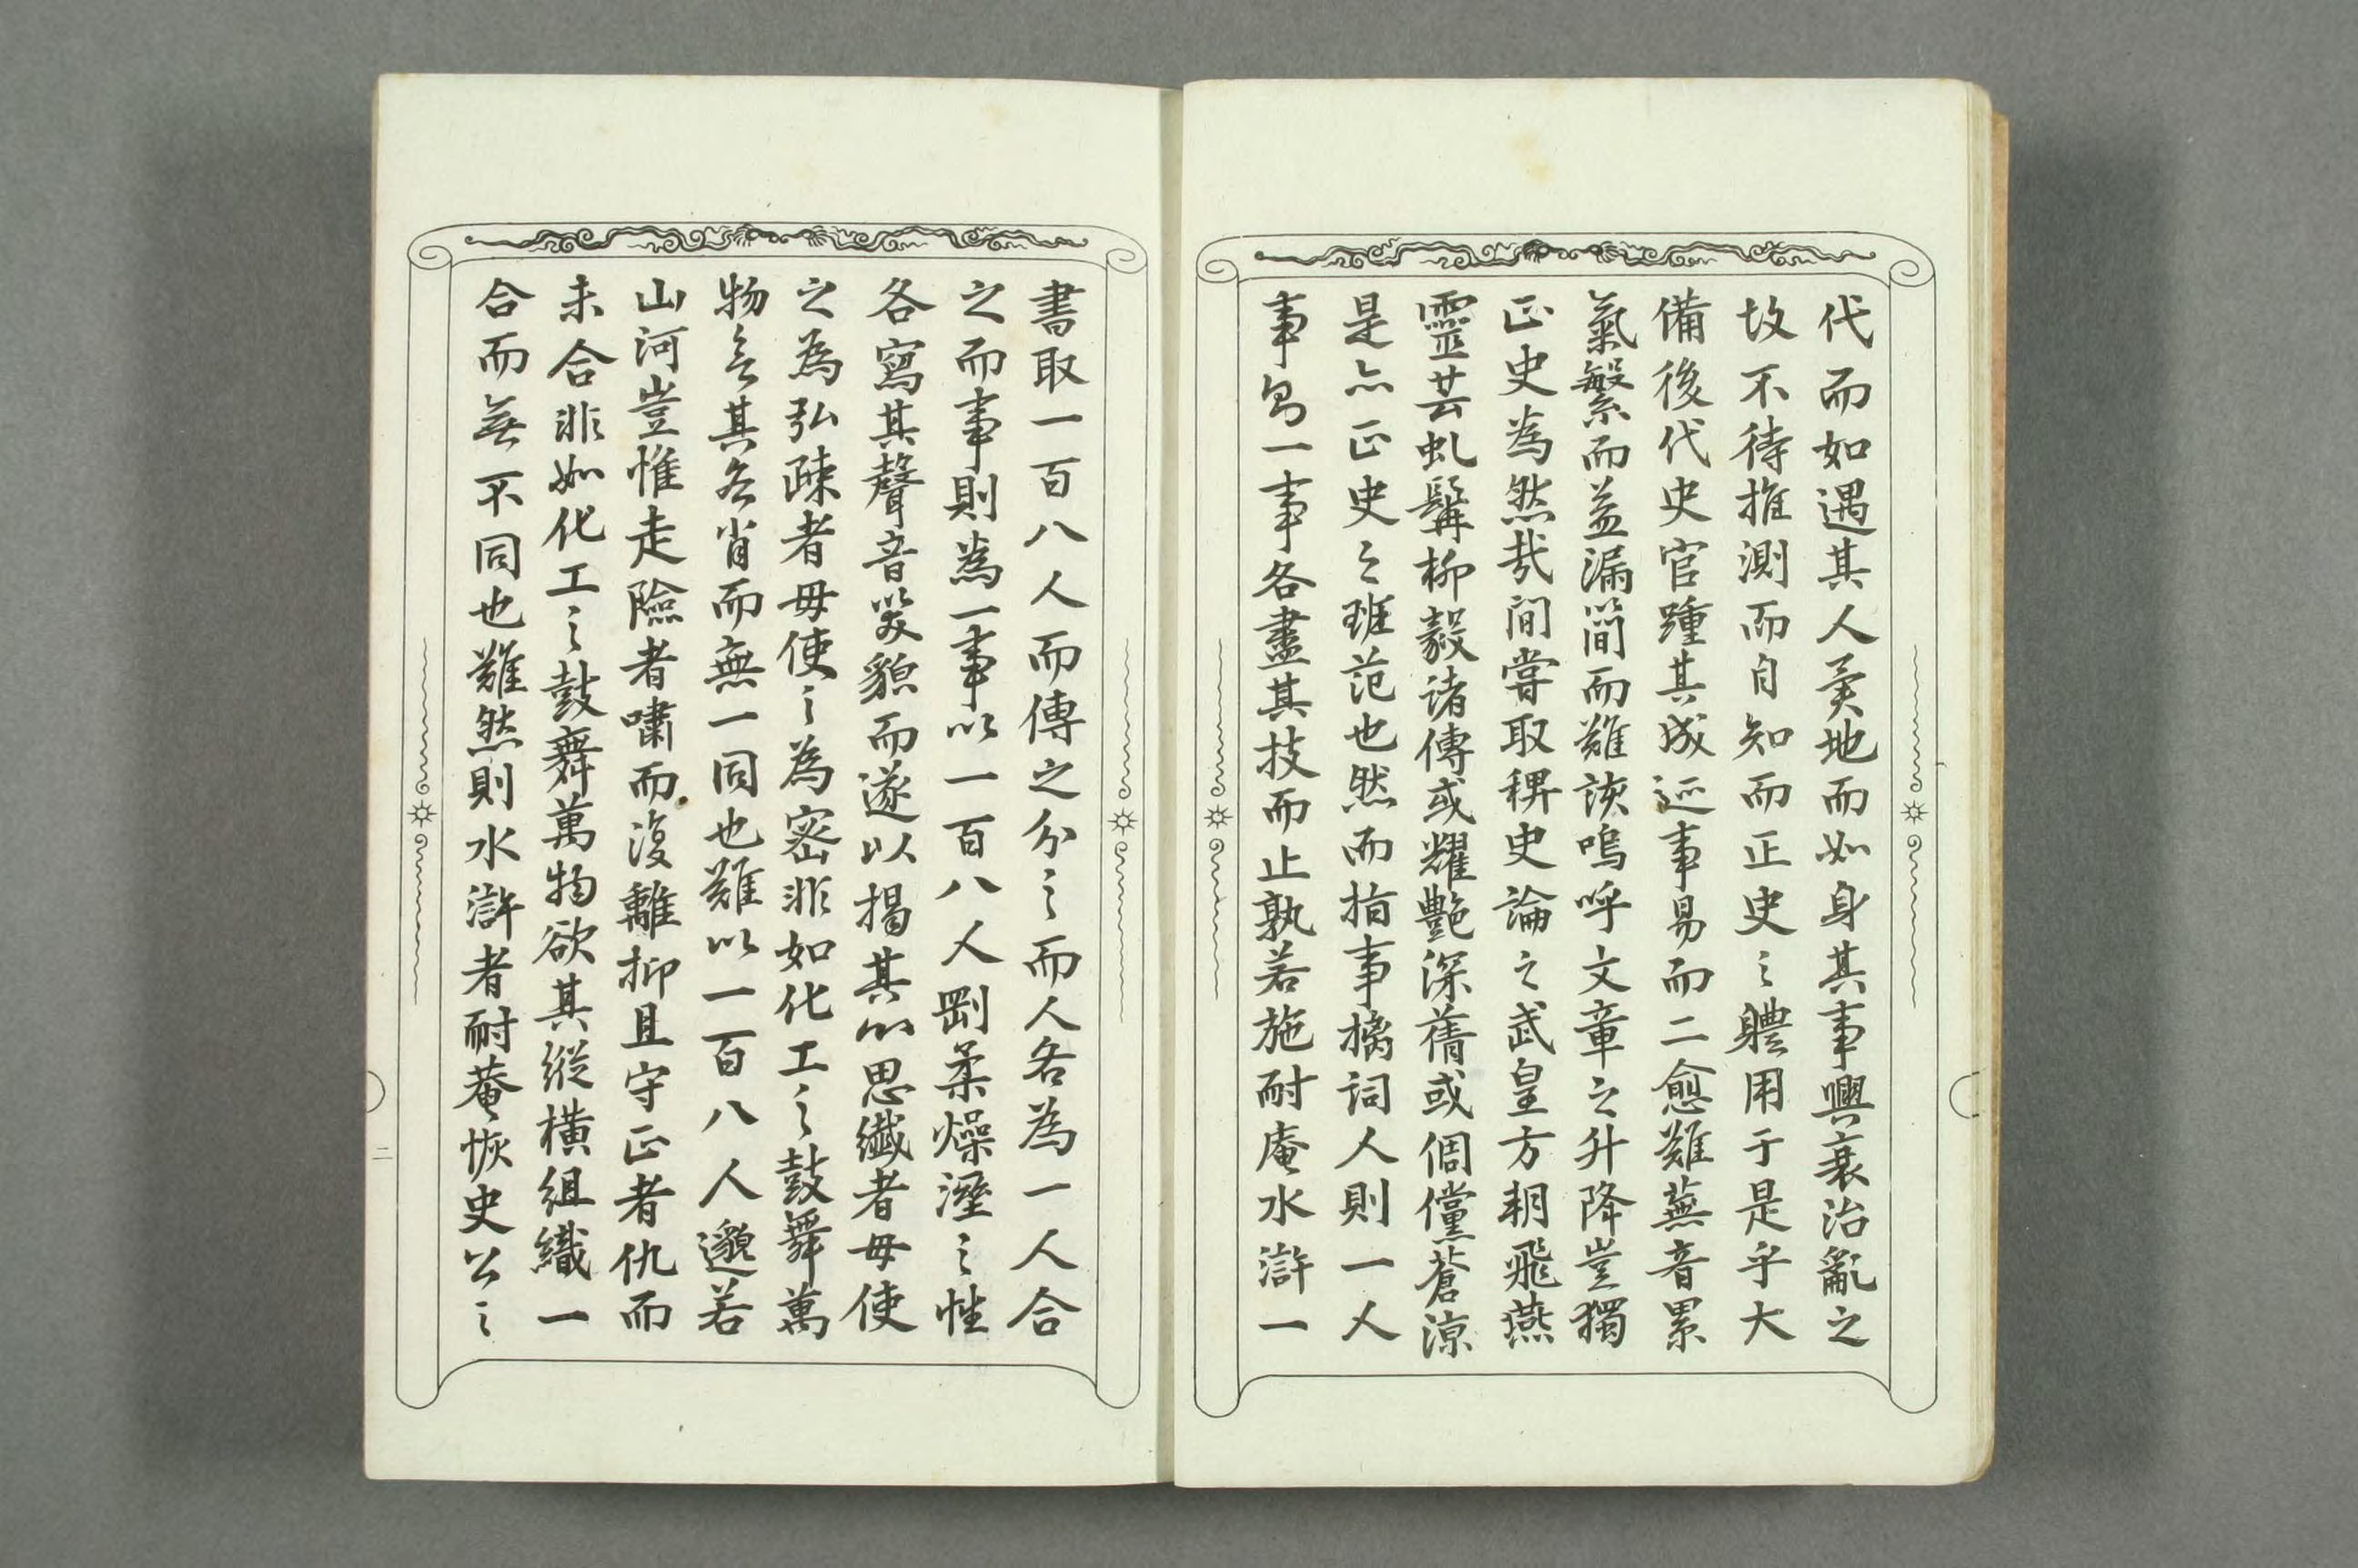 代而如遇其人奚地而如身其事興衰治亂之
故不待推測而自知而正史之體用于是乎大
備後代史官踵其成迹事易而二愈難蕪音累
氣繁而益漏簡而難該嗚呼文章之升降豈獨
正史為然哉間嘗取稗史論之武皇方朔飛燕
靈芸虬髯柳毅諸傳或耀艷深蒨或倜儻蒼涼
是亦正史之班范也然而指事摛詞人則一人
事為一事各盡其技而止孰若施耐庵水滸一
書取一百八人而傳之分之而人各為一人合
之而事則為一事以一百八人剛柔燥溼之性
各寫其聲音笑貌而遂以揭其心思纖者毋使
之為弘疎者毋使之為密非如化工之鼓舞萬
物於其各肖而無一同也難以一百八人邈若
山河豈惟走險者嘯而復離抑且守正者仇而
未合非如化工之鼓舞萬物欲其縱橫組織一
合而無不同也難然則水滸者耐菴恢史公之
二